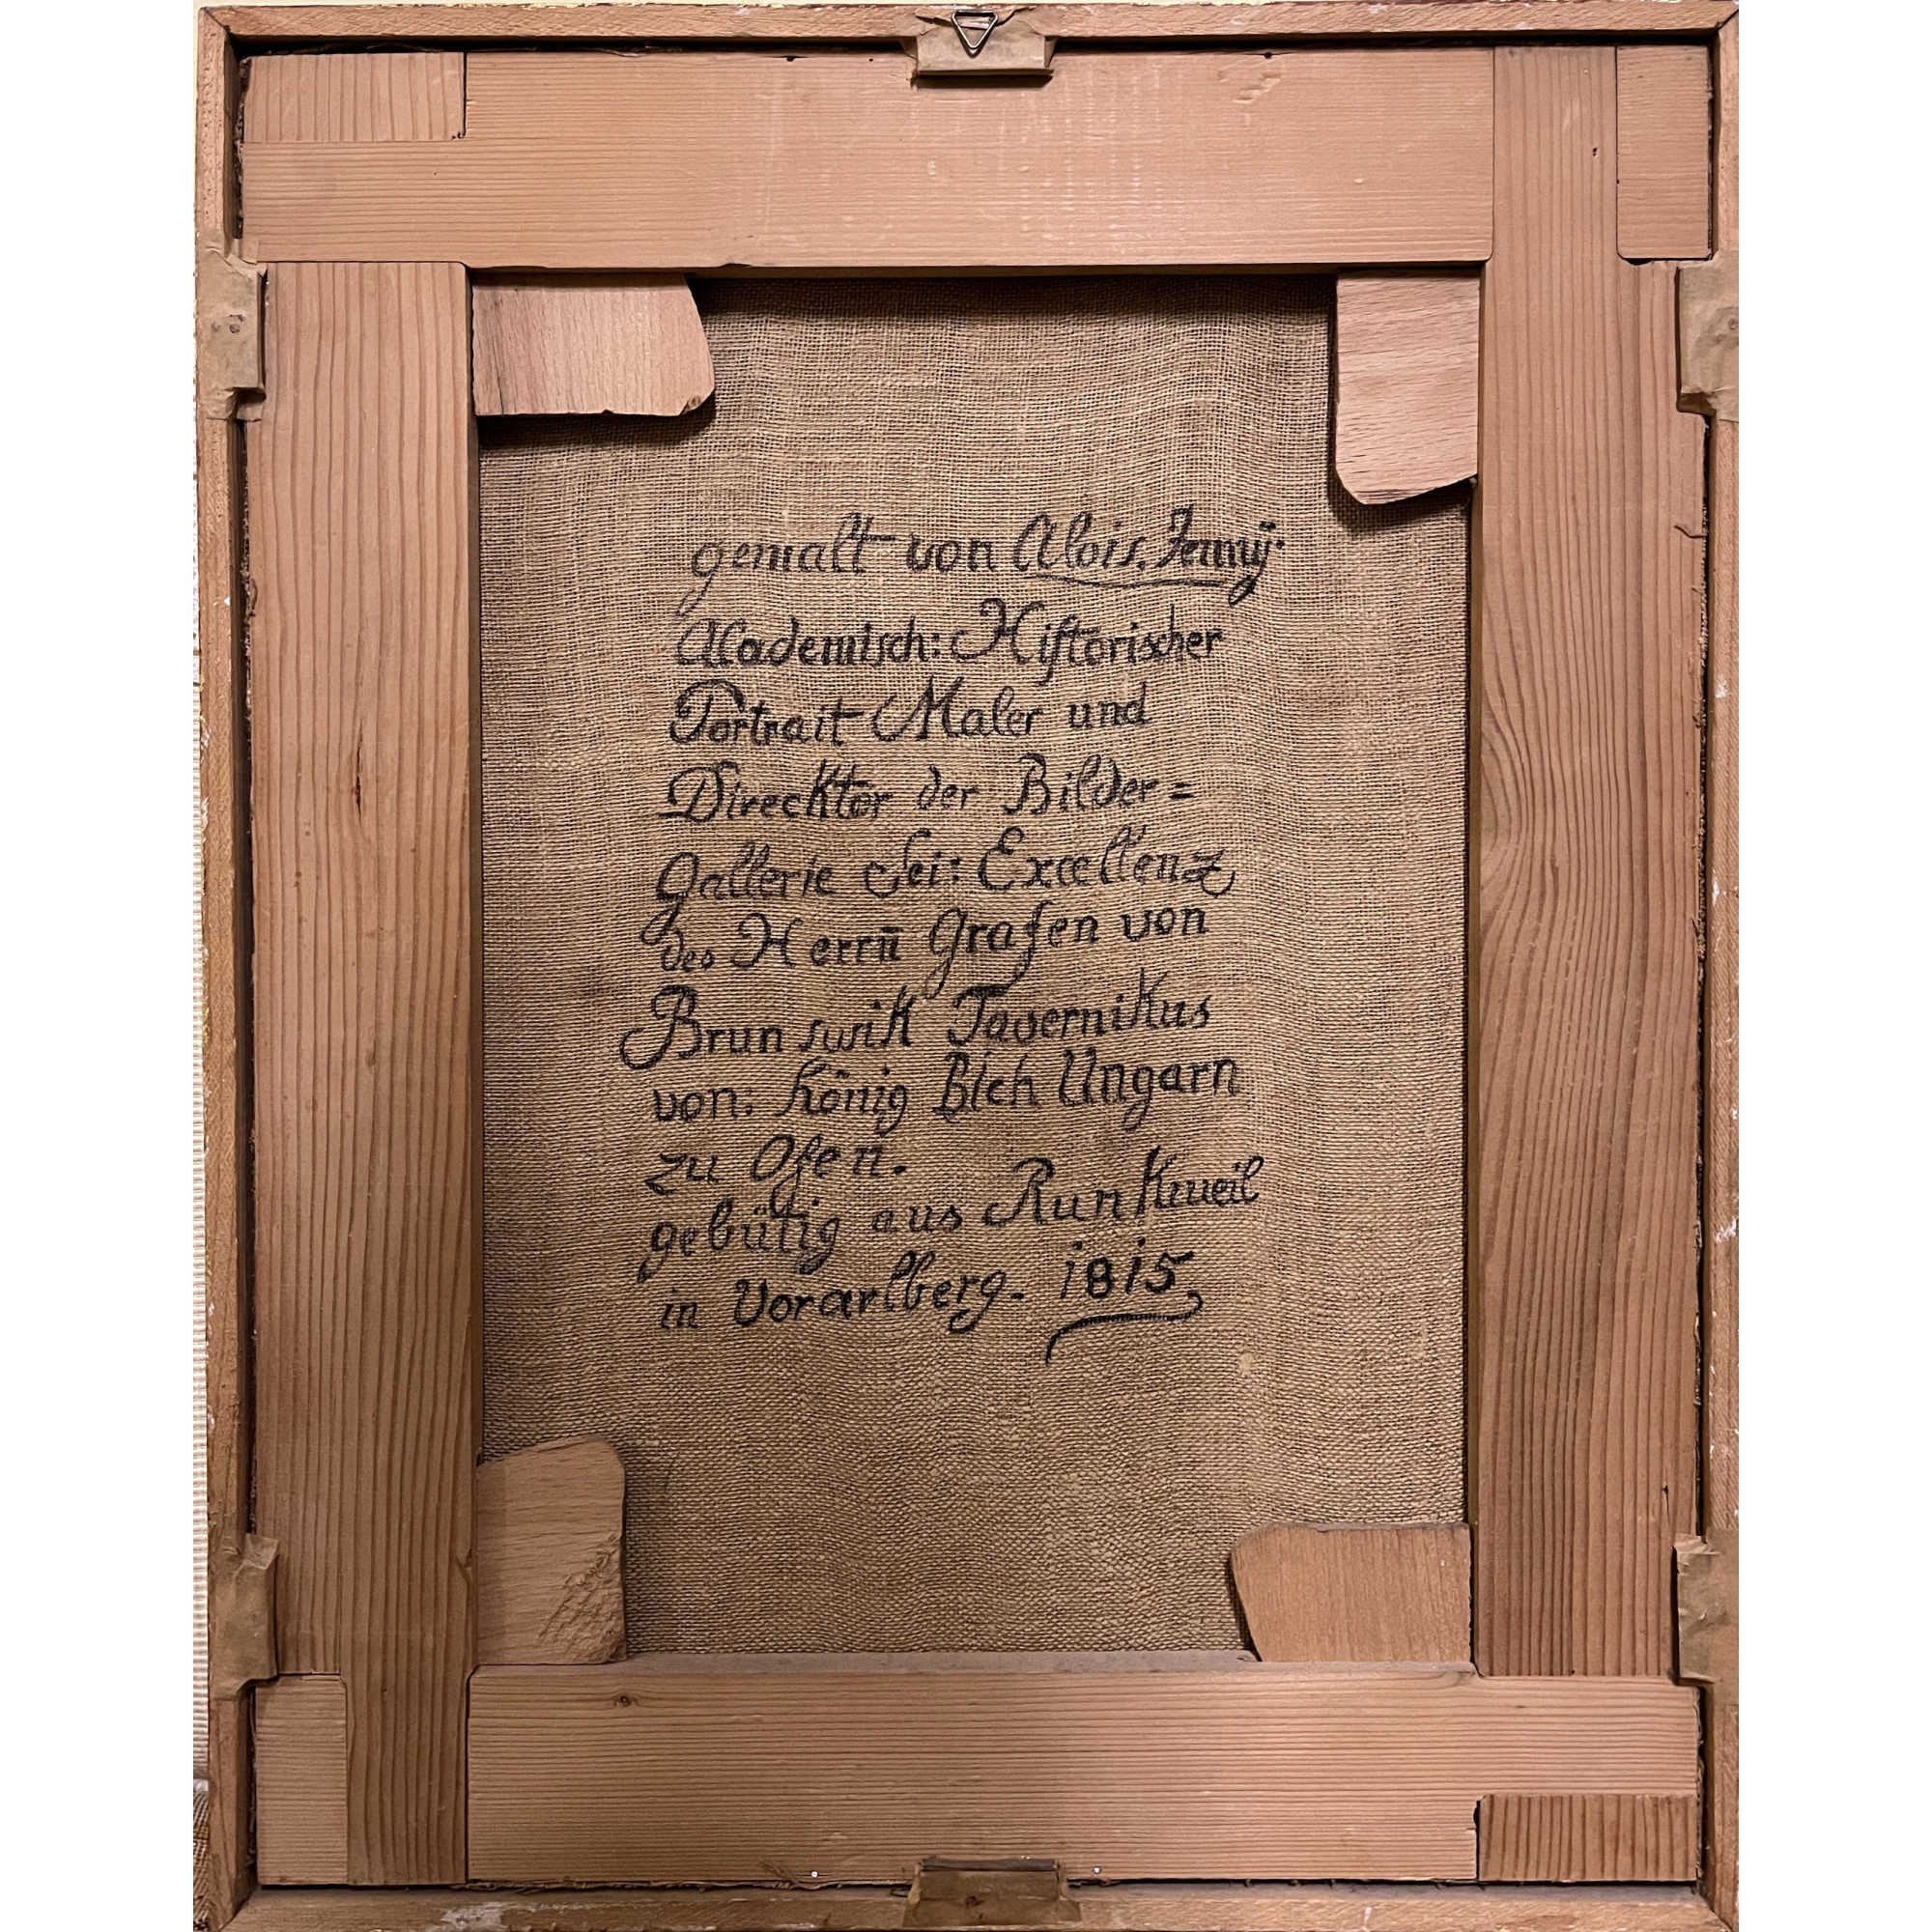 gemalt von Alois. Jenny.
Academisch: Historischer
Portrait Maler und
Direcktor der Bilder=
gallerie Sei: Excellenz
des Herrn̄ Grafen von
Brunswik Tavernikus
von: König Blch Ungarn
zu Ofen.
gebütig aus Runkweil
in Vorarlberg. 1815